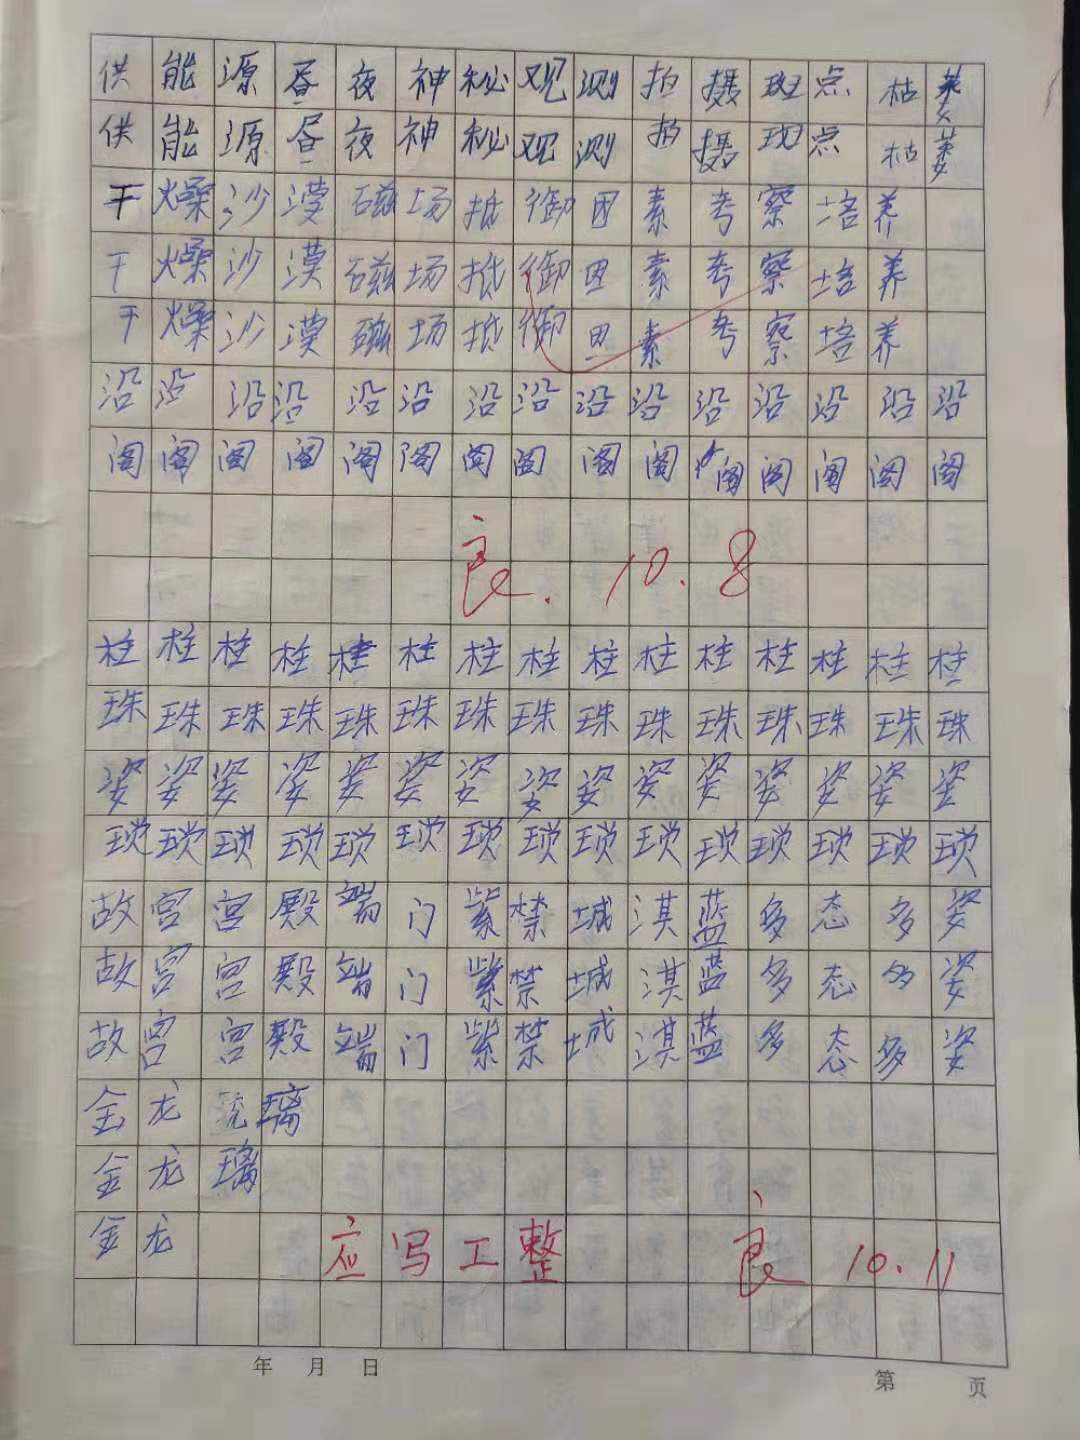 供能源昼夜神秘观测拍摄斑点枯萎
供能源昼夜神秘观测拍摄斑点枯萎
干燥沙漠磁场抵御因素考察培养
干燥沙漠磁场抵御因素考察培养
干燥沙漠磁场抵御因素考察培养
沿沿沿沿沿沿沿沿沿沿沿沿沿沿沿
阁阁阁阁阁阁阁阁阁阁阁阁阁阁阁
良.10.8
柱柱柱柱柱柱柱柱柱柱柱柱柱柱柱
珠珠珠珠珠珠珠珠珠珠珠珠珠珠珠
姿姿姿姿姿姿姿姿姿姿姿姿姿姿姿
琐琐琐琐琐琐琐琐琐琐琐琐琐琐琐
故宫宫殿端门紫禁城湛蓝多态多姿
故宫宫殿端门紫禁城湛蓝多态多姿
故宫宫殿端门紫禁城湛蓝多态多姿
金龙琉璃
金龙璃
金龙 应写工整 良 10.11
年 月 日 第 页